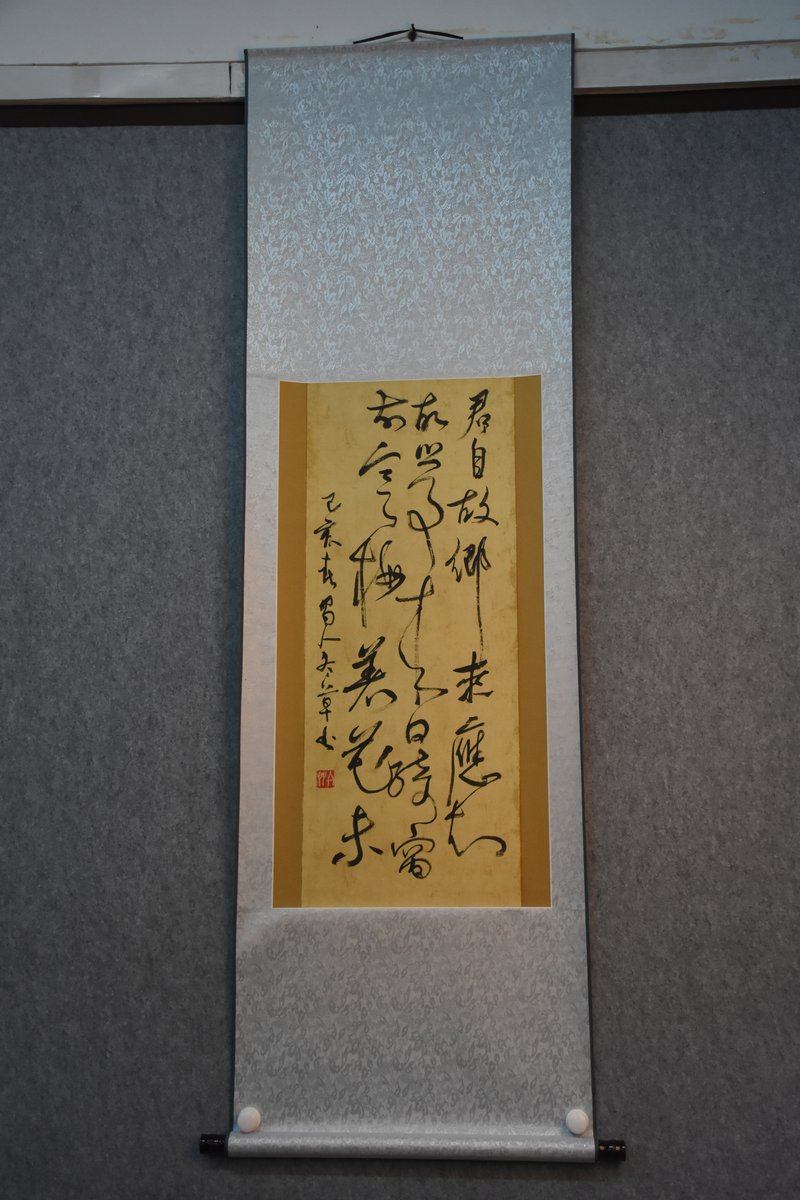 君自故鄉來應知
故鄉事來日綺窗
前寒梅著花未
己亥春蜀人草书